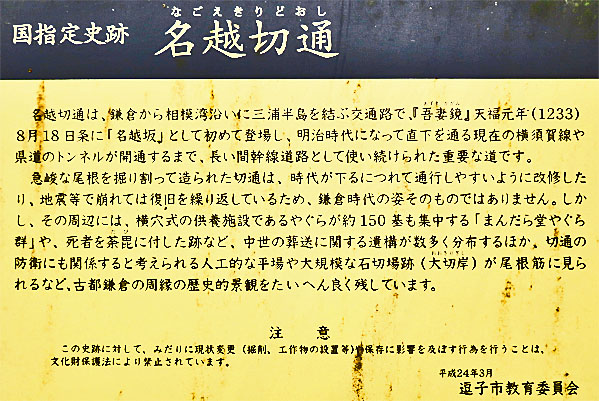 なごえきりどおし
国指定史跡 名越切通
名越切通は、鎌倉から相模湾沿いに三浦半島を結ぶ交通路で、『吾妻鏡』天福元年(1233)
8月18日条に「名越坂」として初めて登場し、明治時代になって直下を通る現在の横須賀線や
県道のトンネルが開通するまで、長い間幹線道路として使い続けられた重要な道です。
急峻な尾根を掘り割って造られた切通は、時代が下るにつれて通行しやすいように改修した
り、地震等で崩れては復旧を繰り返しているため、鎌倉時代の姿そのものではありません。しか
し、その周辺には、横穴式の供養施設であるやぐらが約150基も集中する「まんだら堂やぐら
群」や、死者を荼毘に付した跡など、中世の葬送に関する遺構が数多く分布するほか、切通の
防衛にも関係すると考えられる人工的な平場や大規模な石切場跡(大切岸)が尾根筋に見ら
れるなど、古都鎌倉の周縁の歴史的景観をたいへん良く残しています。
注 意
この史跡に対して、みだりに現状変更(掘削、工作物の設置等)や保存に影響を及ぼす行為を行うことは、
文化財保護法により禁止されています。
平成24年3月
逗子市教育委員会